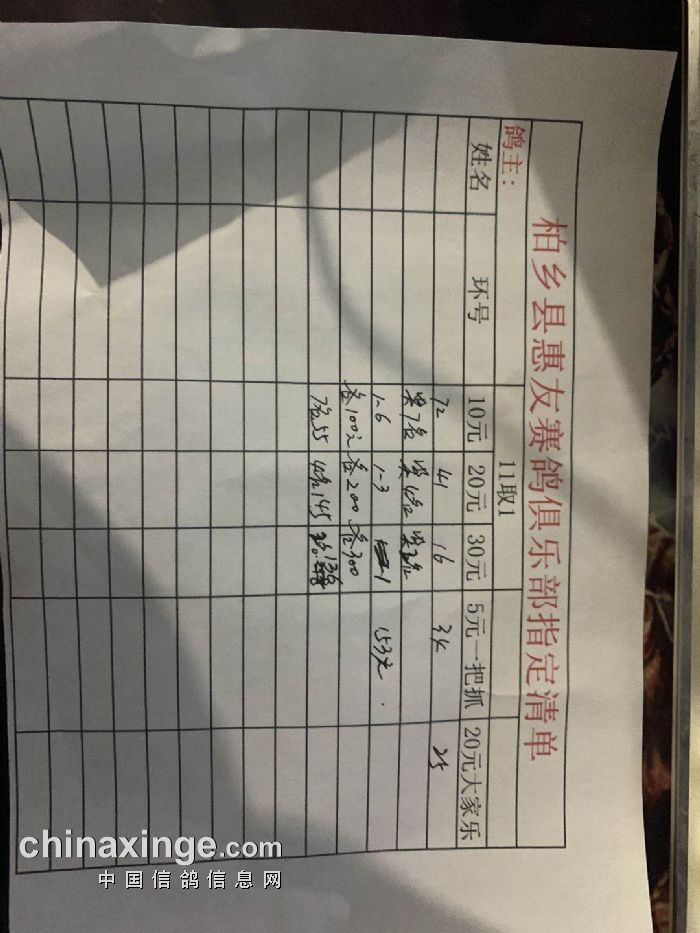 柏乡县惠友赛鸽俱乐部指定清单
鸽主：
11取1
姓名 环号 10元 20元 30元 5元一把抓 20元大家乐
72 41 16 34 25
奖7名 奖4名 奖2名
1-6 1-3 1 153元
各100元 各200 各300
7名55 4名145 136
chinaxinge.com
中国信鸽信息网